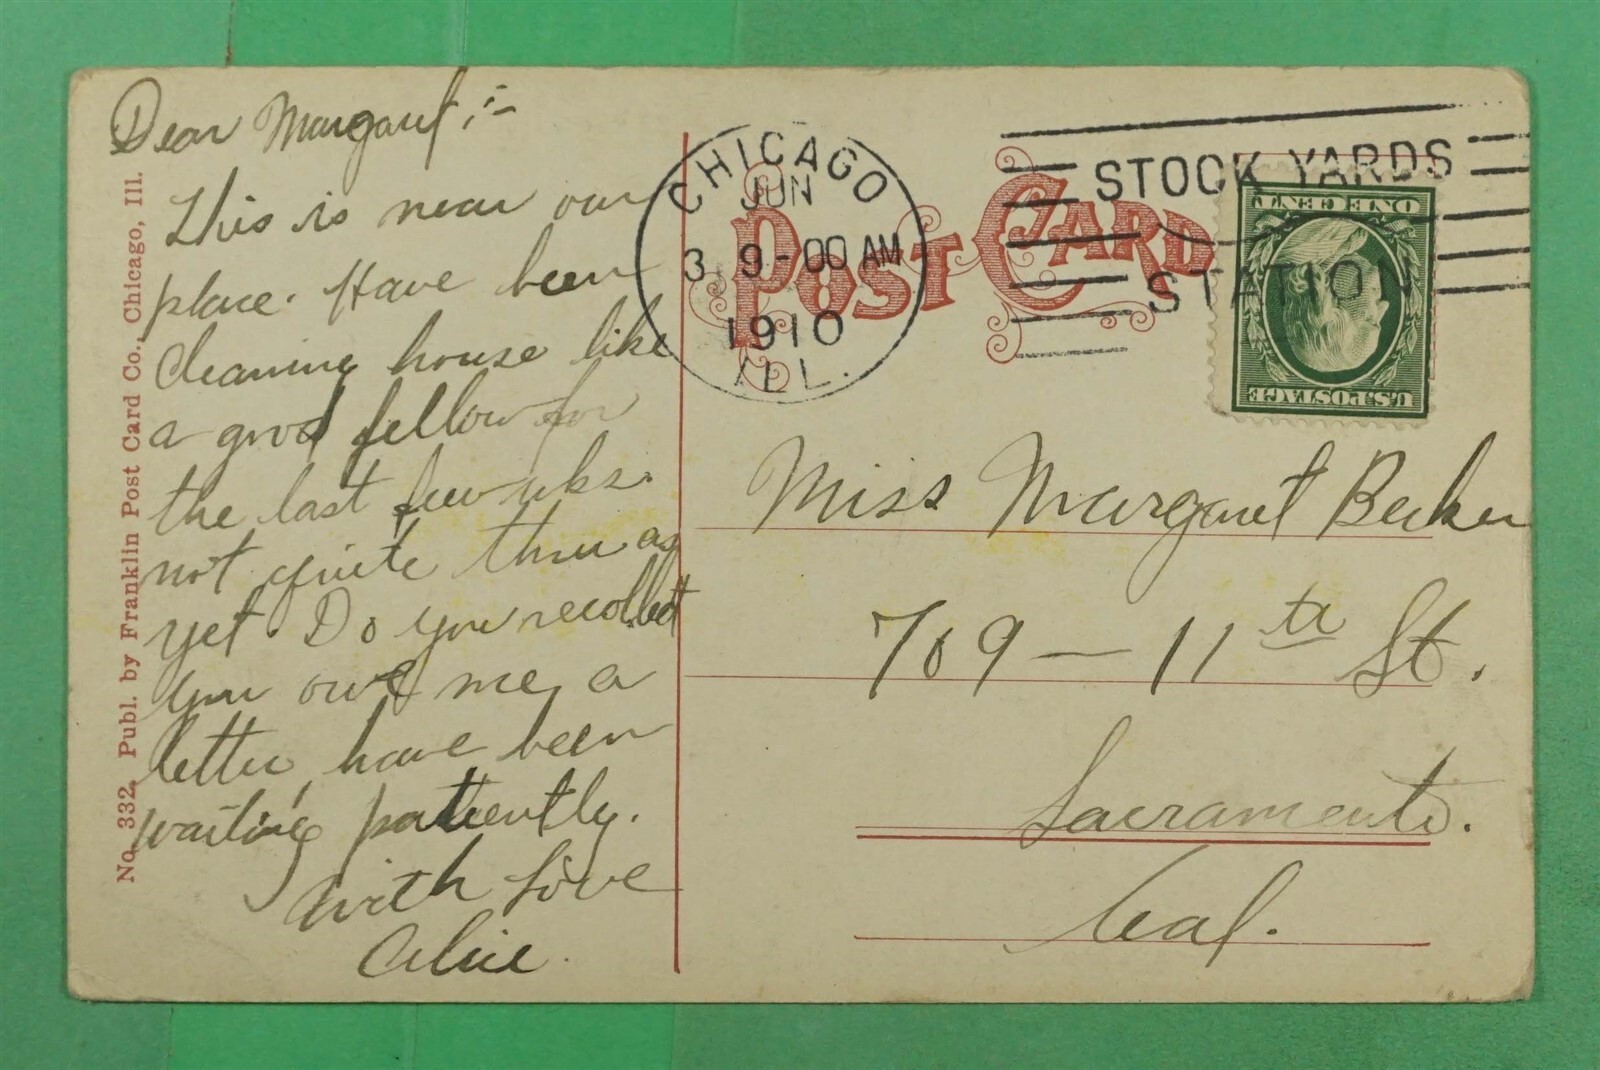 Dear Margaret,:-
This is near our
place. Have been
cleaning house like
a good fellow for
the last few wks.
not quite thru as
yet. Do you recollect
you owe me a
letter have been
waiting patiently.
With Love
Alice.
No. 332. Publ. by Franklin Post Card Co., Chicago, Ill.
POST CARD
CHICAGO
JUN
3 9-00 AM
1910
ILL.
STOCK YARDS
STATION
U.S. POSTAGE
ONE CENT
Miss Margaret Becker
709 — 11th St.
Sacramento.
Cal.